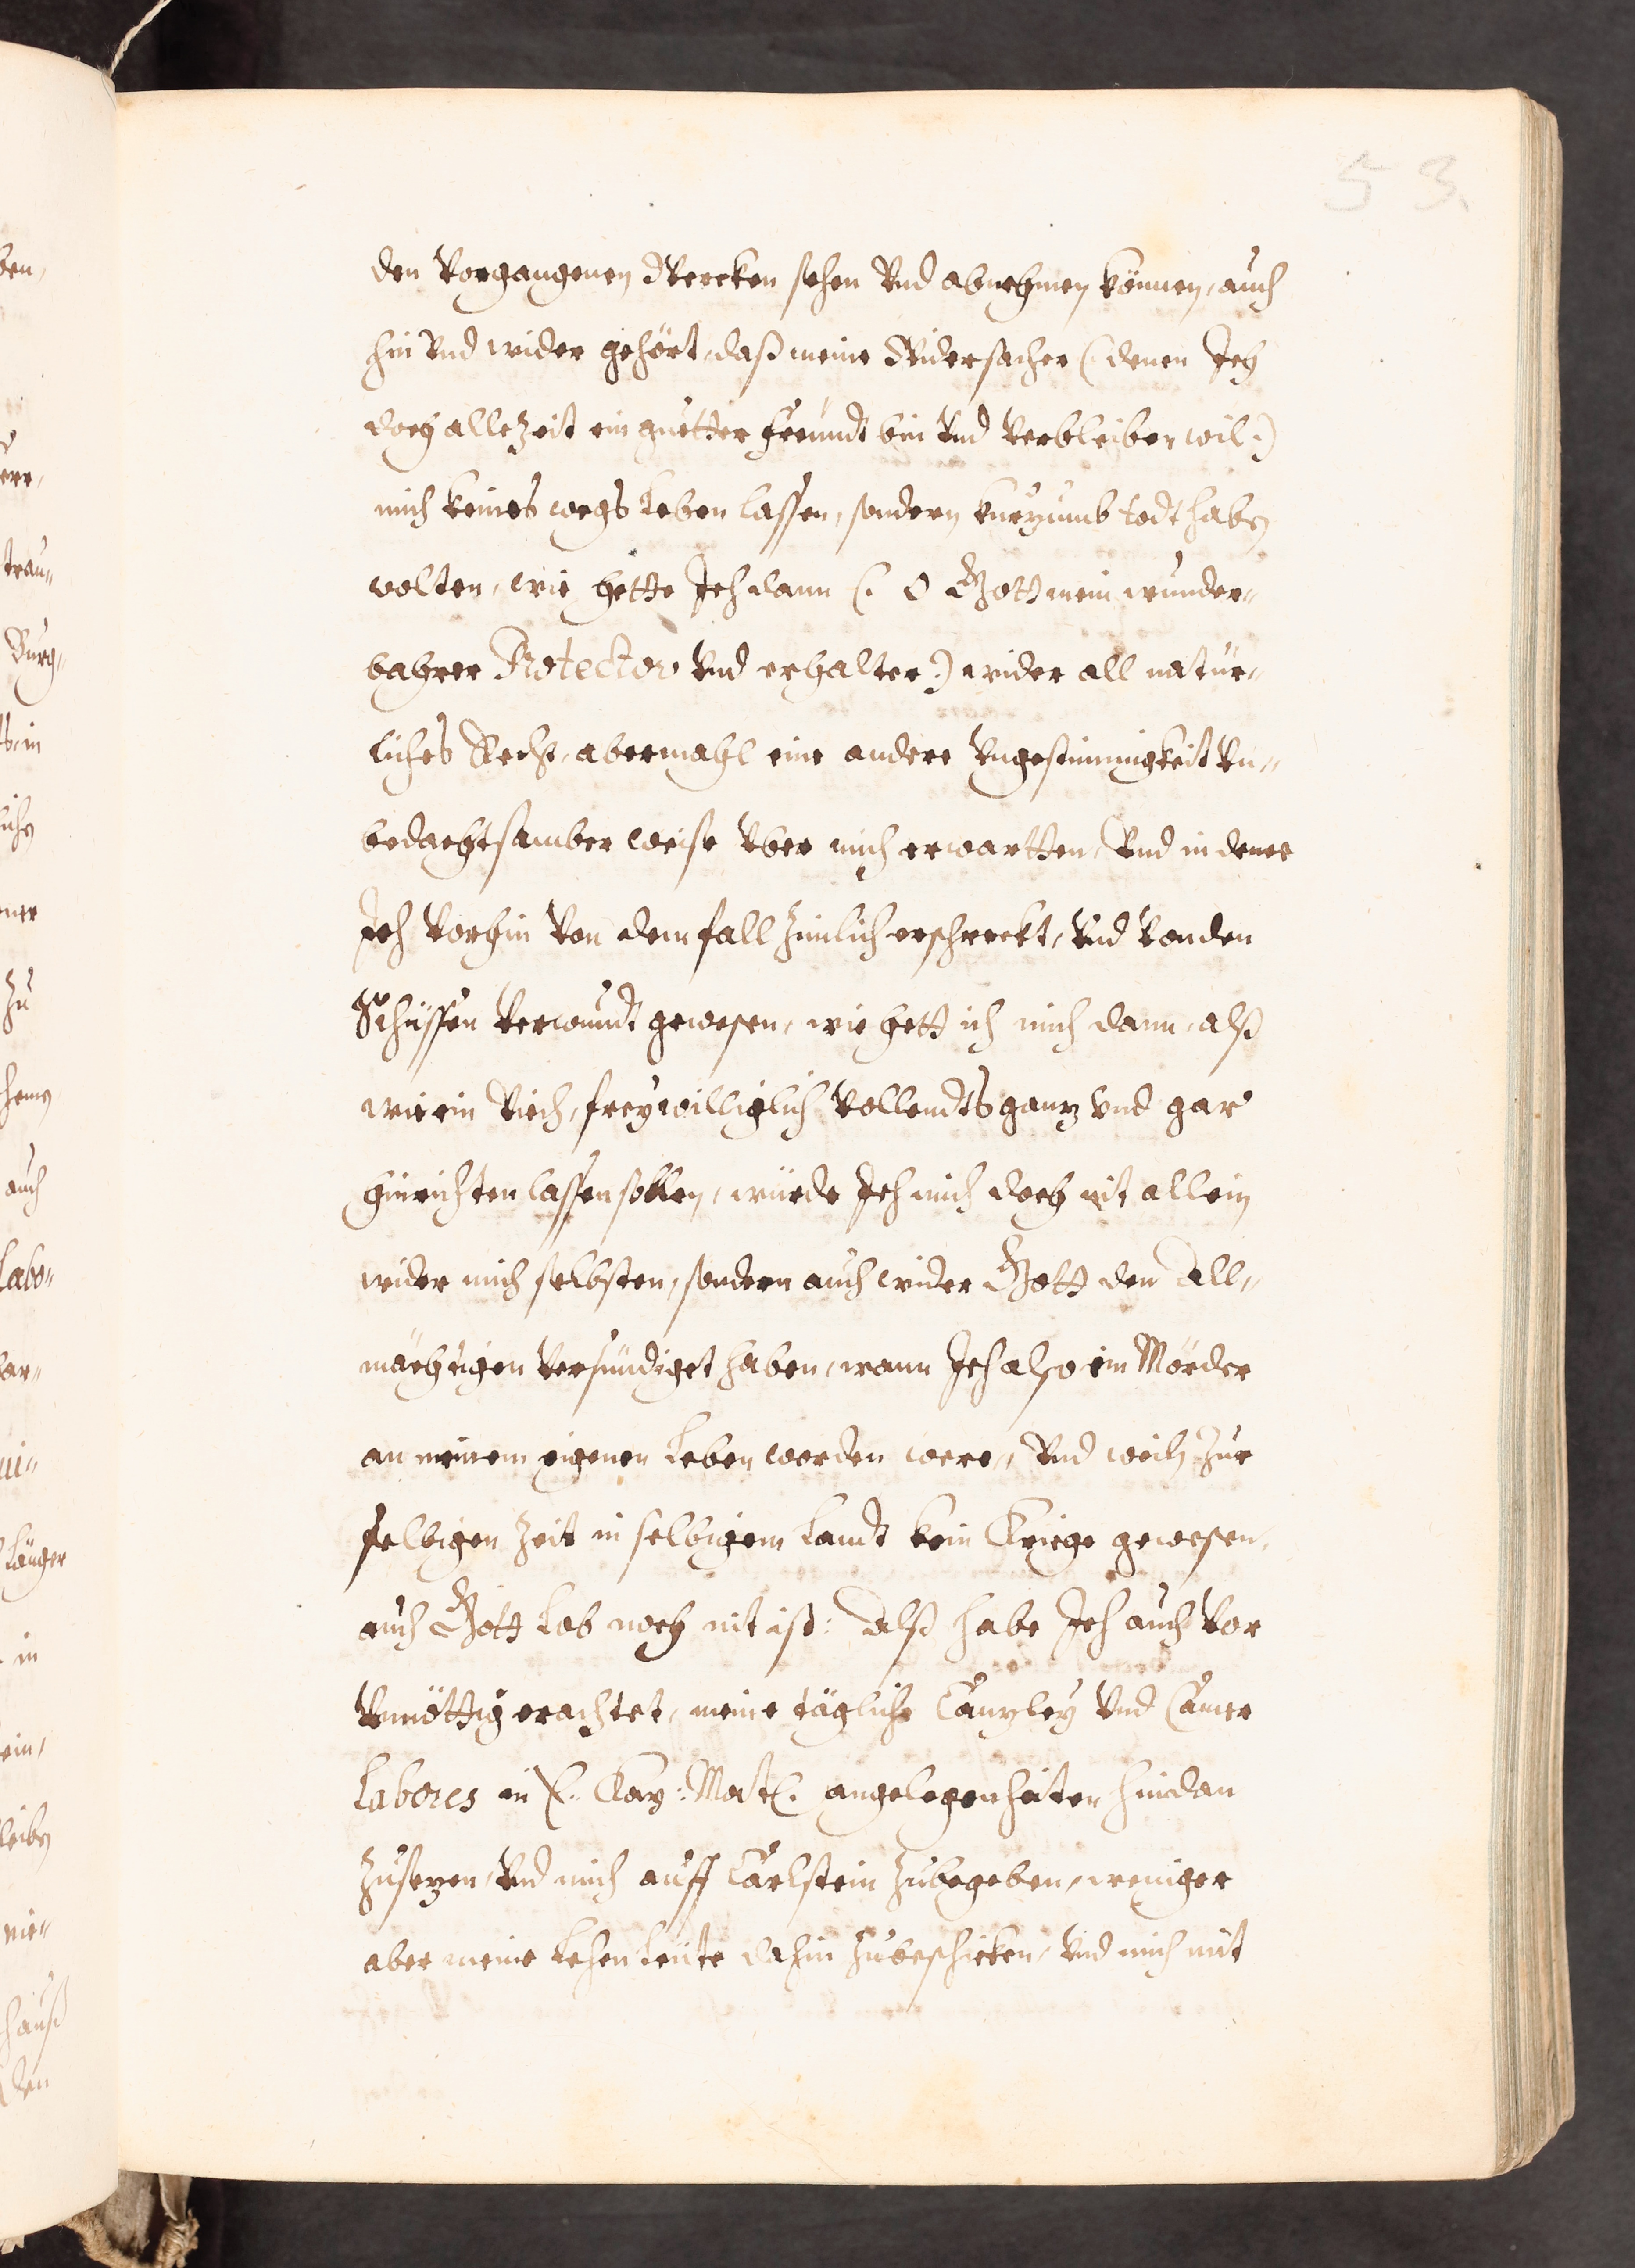 53.
den Vorgangenen Wercken sehen Vnd abnehmen können, auch
hin Vnd wider gehört, daß meine Widersacher (: denen Ich
doch alle Zeit ein gutter freundt bin Vnd Verbleiben wil :)
mich keines wegs Leben lassen, sondern kurzumb todt haben
wolten, wie hette Ich dann (: O Gott mein wunder„
bahrer Protector Vnd erhalter :) wider all natür„
liches Recht, abermahl eine andere Vngestimmigkeit Vn„
bedachtsamber weise Vber mich erwartten, Vnd in deme
Ich Vorhin Von dem fall Zimlich erschreckt, Vnd Von den
Schüssen Verwundt gewesen, wie hett ich mich dann, alß
wie ein Viech, freywilliglich Vollendts ganz Vnd gar
hinrichten lassen sollen, würde Ich mich doch nit allein
wider mich selbsten, sondern auch wider Gott den All„
mächtigen Versündiget haben, wann Ich also ein Mörder
an meinem eigenen Leben worden were„ Vnd weiln Zur
selbigen Zeit in selbigem Landt kein Kriege gewesen,
auch Gott Lob noch nit ist: Alß habe Ich auch Vor
Vnnöttig erachtet, meine tägliche Canzley Vnd Camer
Labores in E: Kay: Matt: angelegenheiten hindan
Zusezen, Vnd mich auff Carlstein Zubegeben, weniger
aber meine Lehenleüte dahin Zubeschicken, Vnd mich mit